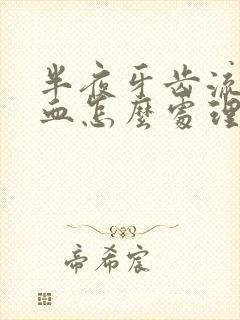 半夜牙齿流
血怎麼處理
帝希宸